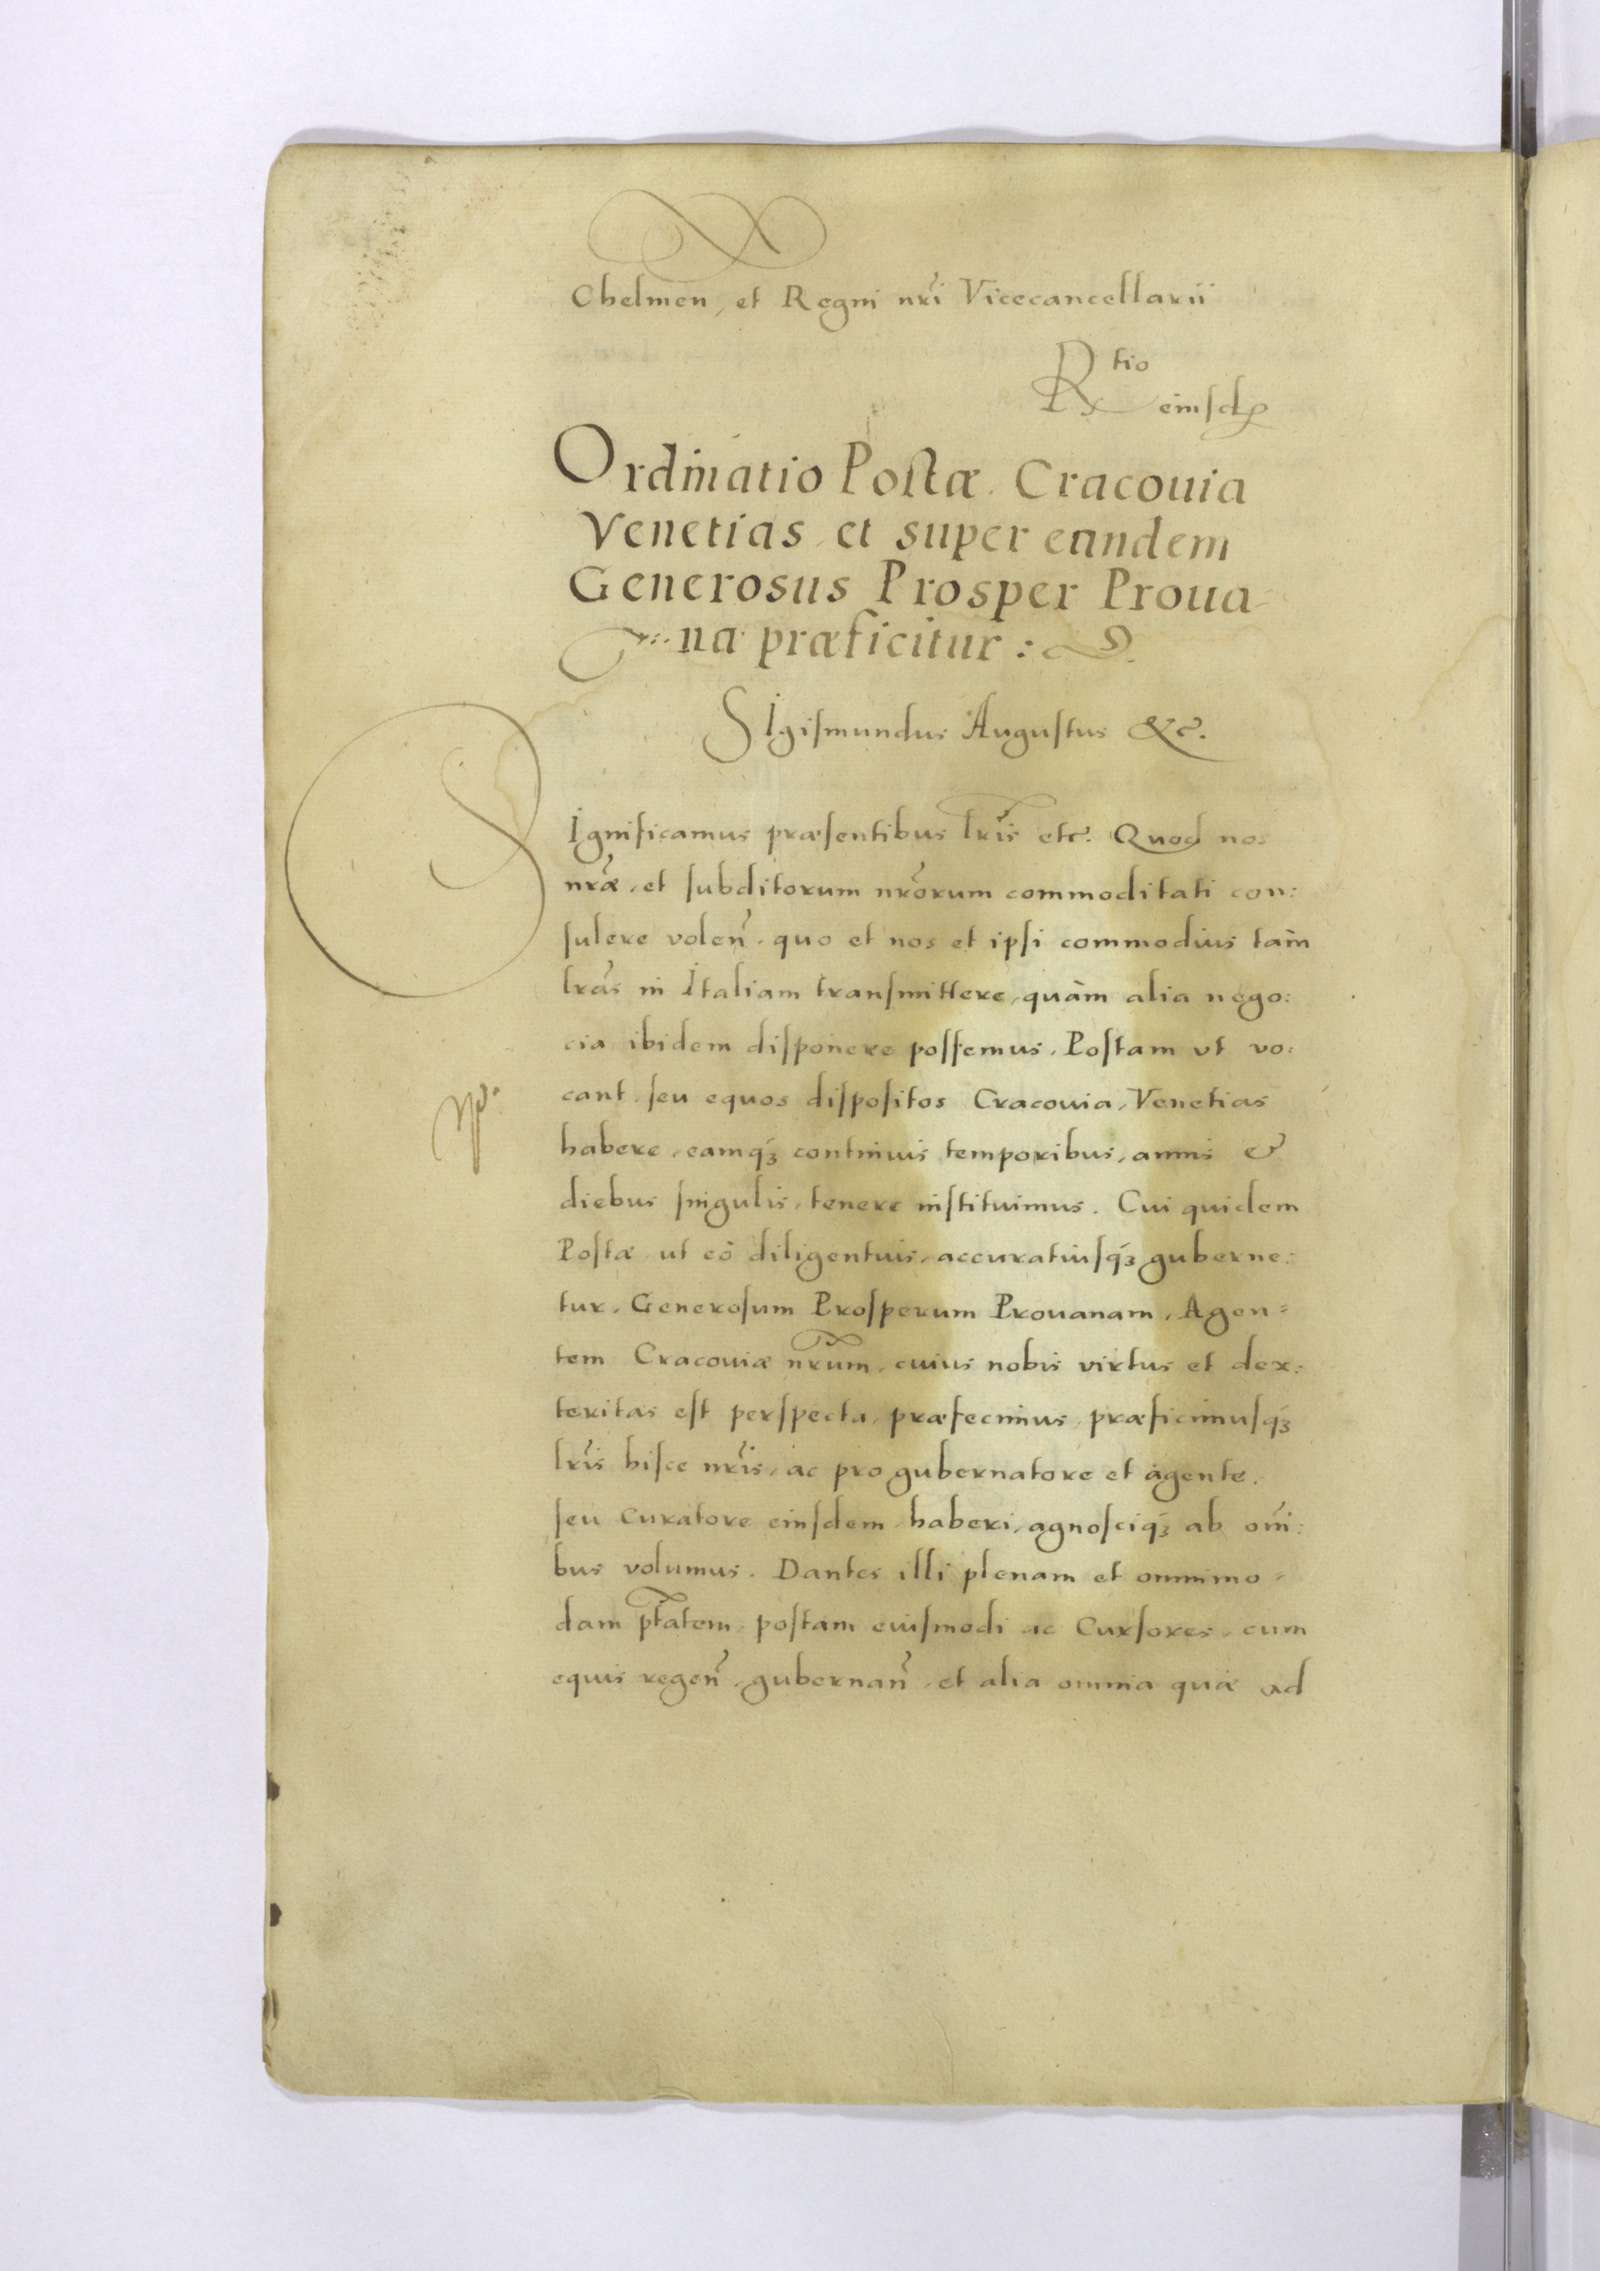 Chelmen, et Regni nr̃i Vicecancellarii
Rtio
eiusdꝫ
Ordinatio Postæ Cracouia
Venetias, et super eandem
Generosus Prosper Proua-
na præficitur:
SIgismundus Augustus &c.
SIgnificamus præsentibus lr̃is etc. Quod nos
nr̃æ, et subditorum nr̃orum commoditati con:
sulere voleñ, quo et nos et ipsi commodius tàm
lr̃as in Italiam transmittere, quàm alia nego:
cia ibidem disponere possemus, Postam vt vo:
cant, seu equos dispositos Cracouia, Venetias
habere, eamqꝫ continuis temporibus, annis &
diebus singulis, tenere instituimus. Cui quidem
Postæ ut eò diligentius, accuratiusqꝫ guberne:
tur, Generosum Prosperum Prouanam, Agen=
tem Cracouiæ nr̃um, cuius nobis virtus et dex:
teritas est perspecta, præfecimus, præficimusqꝫ
lr̃is hisce nr̃is, ac pro gubernatore et agente,
seu Curatore eiusdem haberi, agnosciqꝫ ab om̃i:
bus volumus. Dantes illi plenam et omnimo=
dam pt̃atem, postam euismodi ac Cursores, cum
equis regeñ, gubernañ, et alia omnia quæ ad